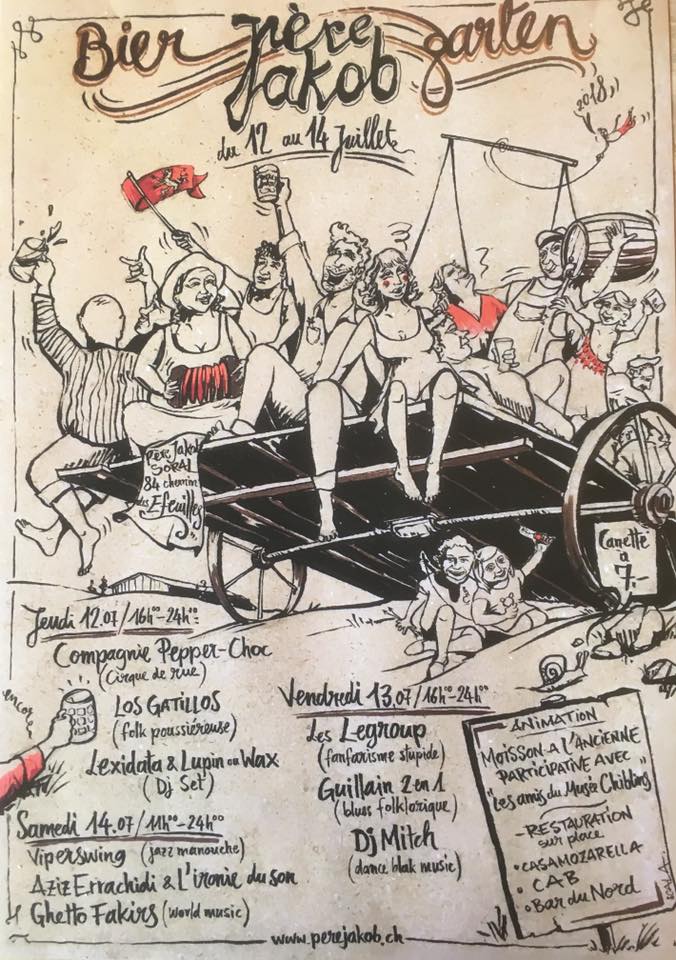 Bier père garten
Jakob
du 12 au 14 Juillet
2018
Père Jakob
SORAL
84 chemin
des Efeuilles
Canette
à
7.-
Jeudi 12.07/16h00-24h00:
Compagnie Pepper-Choc
(Cirque de rue)
encore
Los GATILLOS
(folk poussiéreuse)
Lexidata & Lupin ou Wax
(Dj Set)
Samedi 14.07/11h00-24h00
Viperswing (jazz manouche)
Aziz Errachidi & L'ironie du son
Ghetto Fakirs (world music)
Vendredi 13.07/16h00-24h00
Les Legroup
(fanfarisme stupide)
Guillain 2 en 1
(blues folklorique)
Dj Mitch
(dance blak music)
ANIMATION
MOISSON A L'ANCIENNE
PARTICIPATIVE AVEC
"Les amis du Musée Chibling"
-RESTAURATION
sur place
• CASAMOZARELLA
• CAB
• Bar du Nord
www.perejakob.ch